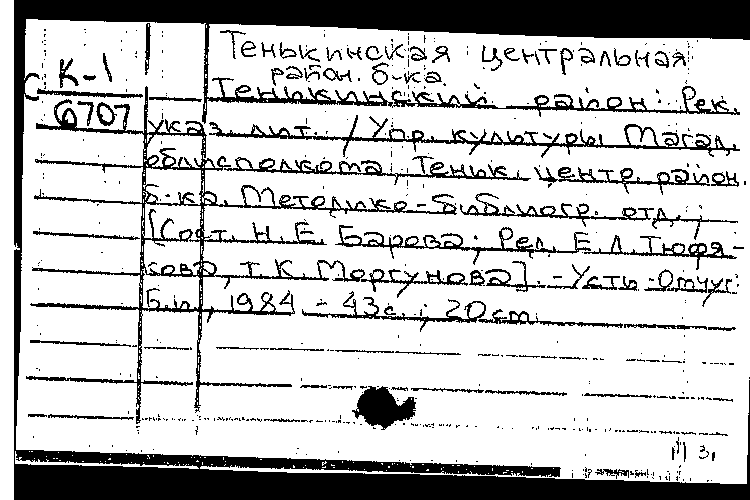 Тенькинская центральная
район. б-ка
С К-1
6707
Тенькинский район: Рек.
указ. лит. / Упр. культуры Магад.
облисполкома, Теньк. центр. район.
б-ка. Методико-библиогр. отд.;
[Сост. Н. Е. Барова; Ред. Е. Л. Тюфя-
кова, Т. К. Моргунова]. - Усть-Омчуг:
Б.и., 1984. - 43с.; 20см.